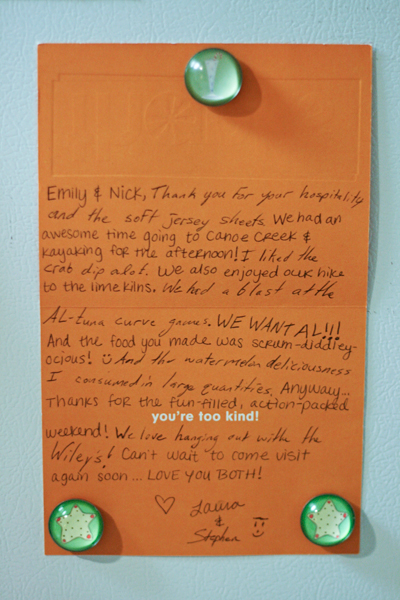 Emily & Nick, Thank you for your hospitality
and the soft jersey sheets. We had an
awesome time going to Canoe Creek &
kayaking for the afternoon! I liked the
crab dip alot. We also enjoyed our hike
to the limekilns. We had a blast at the
AL-tuna curve games. WE WANT AL!!!
And the food you made was scrum-diddley-
ocious! And the watermelon deliciousness
I consumed in large quantities. Anyway...
Thanks for the fun-filled, action-packed
you're too kind!
weekend! We love hanging out with the
Wiley's! Can't wait to come visit
again soon... LOVE YOU BOTH!
Laura
&
Stephen